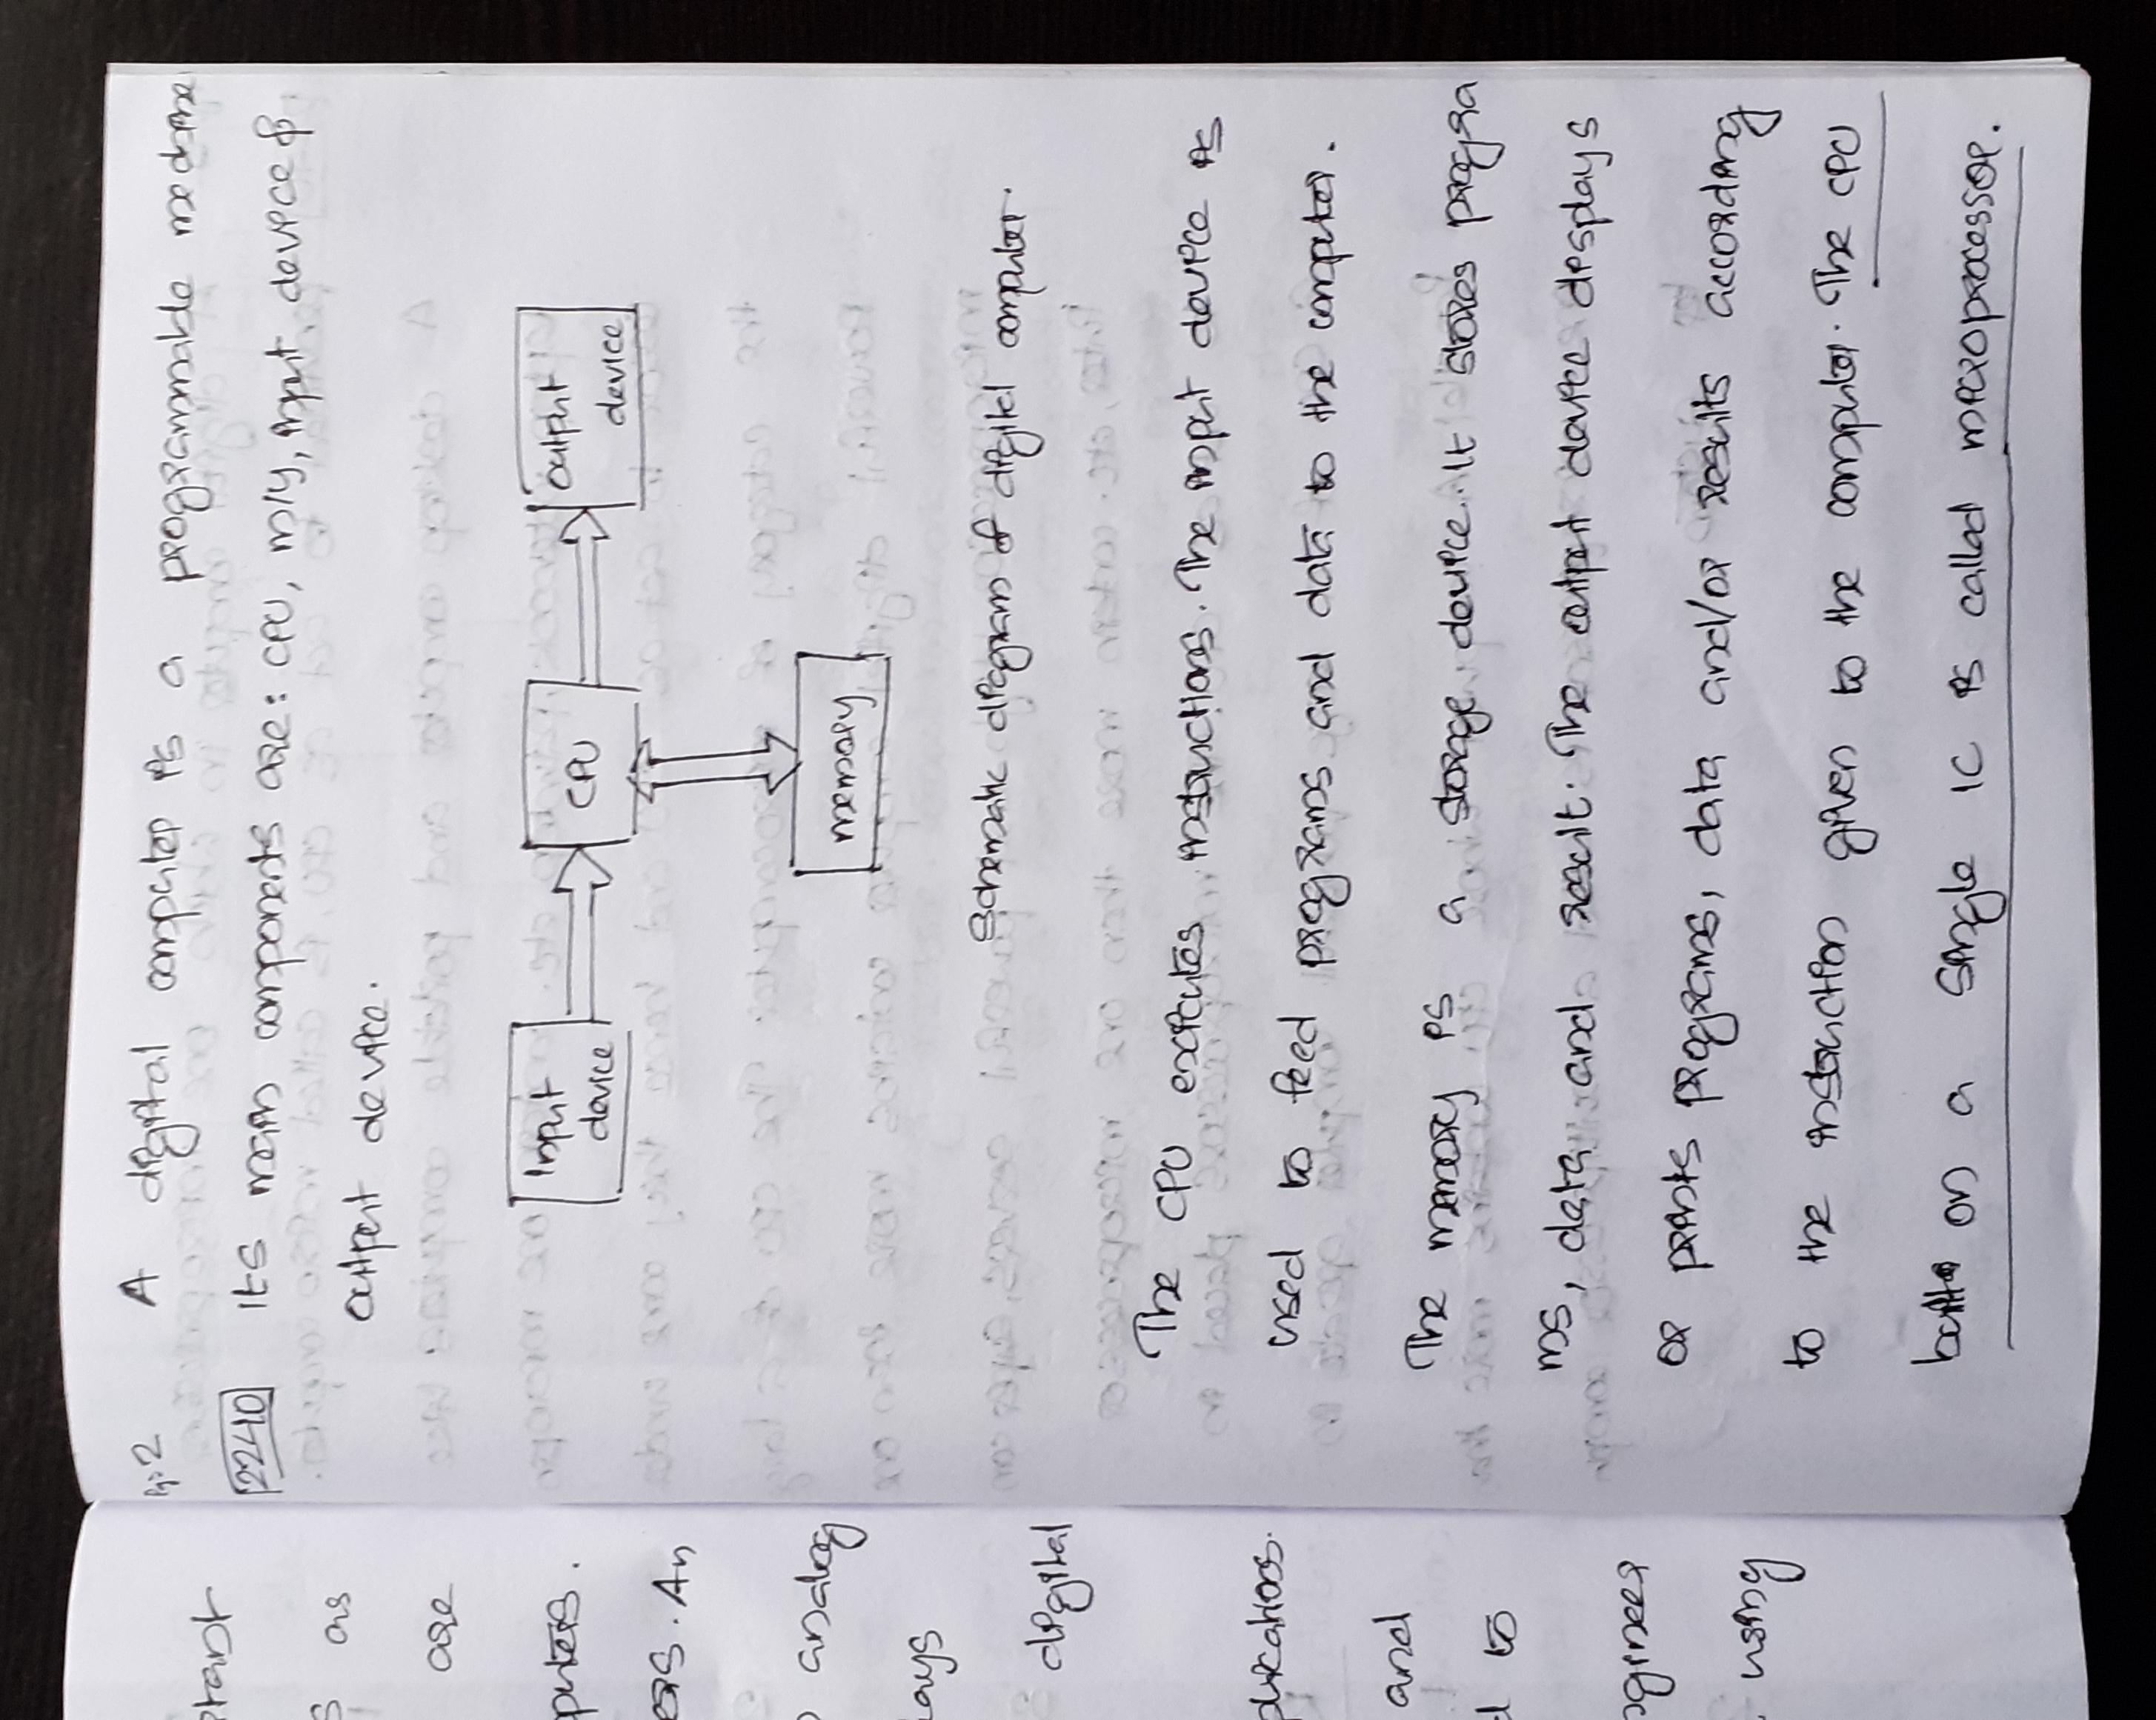 stant
s as
are
puters.
ers. An
analog
lays
digital
plications.
and
d to
ngineer
using
Pg:2 A digital computer is a programmable machine
2240 Its main components are: CPU, m/y, input device &
output device.
Input device
CPU
output device
memory
Schematic diagram of digital computer.
The CPU executes instructions. The input device is
used to feed programs and data to the computer.
The memory is a storage device. It stores progra
ms, data and result. The output device displays
or prints programs, data and/or results according
to the instruction given to the computer. The CPU
built on a single IC is called microprocessor.